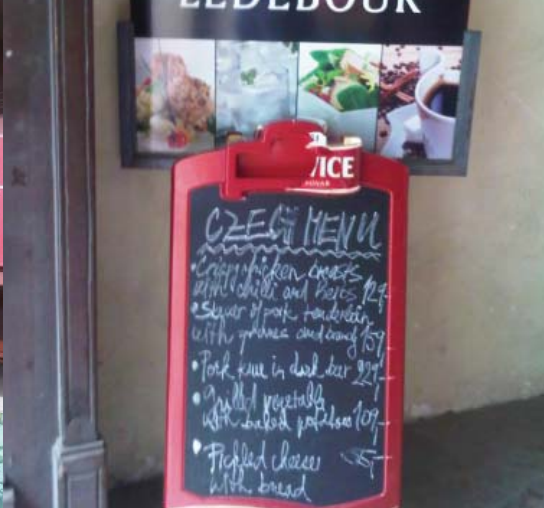 LEDEBOUR
VICE
CZECH MENU
• Crispy chicken breasts
with chilli and herbs 129,-
• Skewer of pork tenderloin
with and 159,-
• Pork knee in dark beer 229,-
• Grilled vegetable
with baked potatoes 109,-
• Pickled cheese
with bread